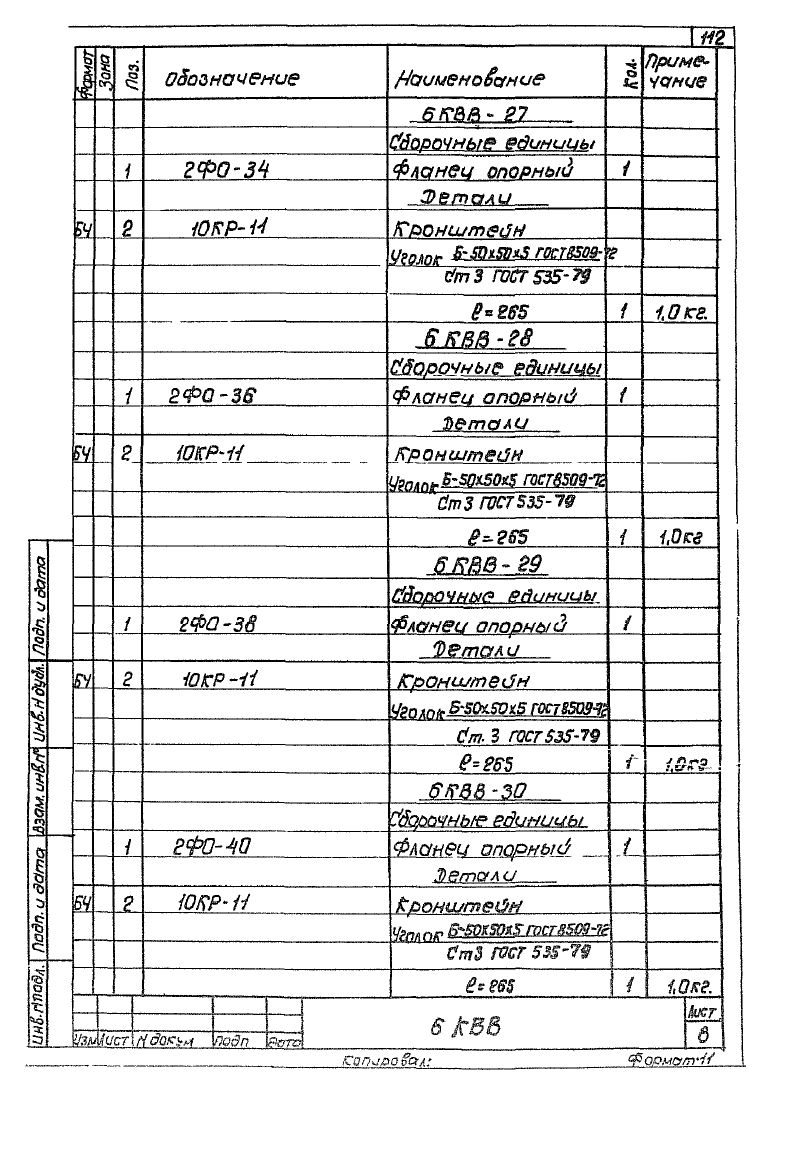 112
Формат Зона Поз. Обозначение Наименование Кол. Приме-
чание
6КВВ-27
Сборочные единицы
1 2ФО-34 Фланец опорный 1
Детали
БЧ 2 10КР-11 Кронштейн
Уголок Б-50х50х5 ГОСТ8509-72
Ст3 ГОСТ 535-79
ℓ=265 1 1,0кг.
6КВВ-28
Сборочные единицы
1 2ФО-36 Фланец опорный 1
Детали
БЧ 2 10КР-11 Кронштейн
Уголок Б-50х50х5 ГОСТ8509-72
Ст3 ГОСТ 535-79
ℓ=265 1 1,0кг
6КВВ-29
Сборочные единицы
1 2ФО-38 Фланец опорный 1
Детали
БЧ 2 10КР-11 Кронштейн
Уголок Б-50х50х5 ГОСТ8509-72
Ст. 3 ГОСТ 535-79
ℓ=265 1 1,0кг
6КВВ-30
Сборочные единицы
1 2ФО-40 Фланец опорный 1
Детали
БЧ 2 10КР-11 Кронштейн
Уголок Б-50х50х5 ГОСТ 8509-72
Ст3 ГОСТ 535-79
ℓ=265 1 1,0кг.
Инв.Nподл. Подп. и дата Взам. инв.n° Инв.N дубл. Подп. и дата
Изм Лист N докум Подп Дата
6 КВВ
Лист
8
Копировал: Формат 11